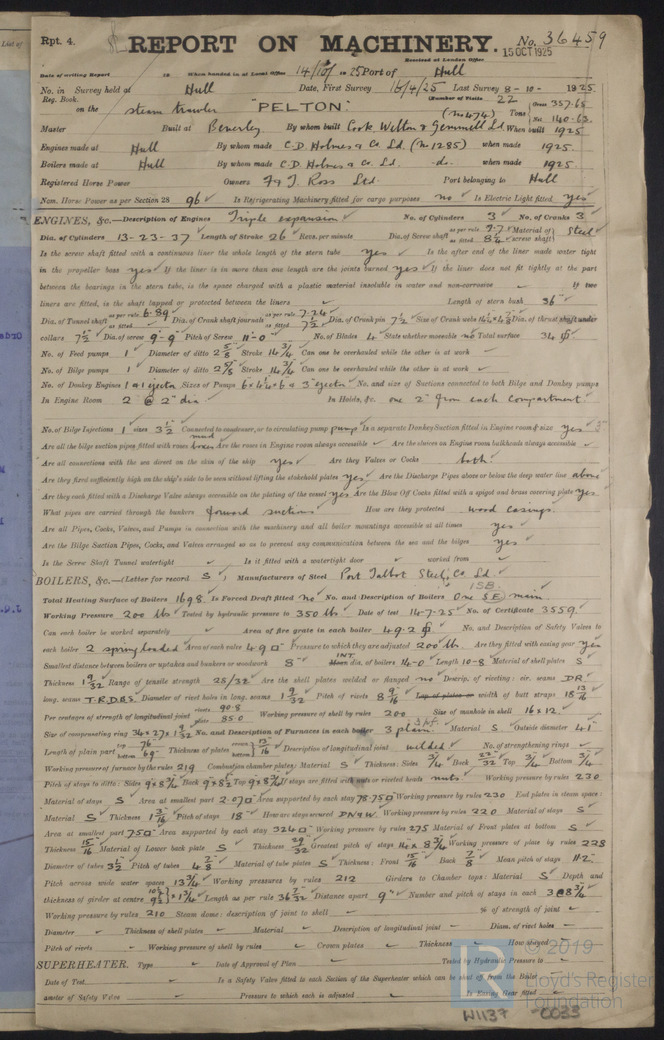 List of
Rpt. 4.
REPORT ON MACHINERY.
No. 36459
Received at London Office 15 OCT 1925
Date of writing Report 19 When handed in at Local Office 14/10/ 19 25 Port of Hull
No. in Survey held at Hull Date, First Survey 16/4/25 Last Survey 8-10- 1925
Reg. Book. (Number of Visits 22
on the steam trawler "PELTON" (No 474) Tons Gross 357.65 Net 140.63
Master Built at Beverley By whom built Cook, Welton & Gemmell Ld When built 1925
Engines made at Hull By whom made C.D. Holmes & Co. Ld (No 1285) when made 1925.
Boilers made at Hull By whom made C.D. Holmes & Co. Ld. -do- when made 1925.
Registered Horse Power Owners F & T. Ross Ltd. Port belonging to Hull
Nom. Horse Power as per Section 28 96 Is Refrigerating Machinery fitted for cargo purposes no Is Electric Light fitted yes
ENGINES, &c.—Description of Engines Triple expansion No. of Cylinders 3 No. of Cranks 3
Dia. of Cylinders 13-23-37 Length of Stroke 26 Revs. per minute Dia. of Screw shaft as per rule 7.7 as fitted 8¼ Material of screw shaft Steel
Is the screw shaft fitted with a continuous liner the whole length of the stern tube yes Is the after end of the liner made water tight
in the propeller boss yes If the liner is in more than one length are the joints burned yes If the liner does not fit tightly at the part
between the bearings in the stern tube, is the space charged with a plastic material insoluble in water and non-corrosive If two
liners are fitted, is the shaft lapped or protected between the liners Length of stern bush 36"
Dia. of Tunnel shaft as per rule 6.89 as fitted Dia. of Crank shaft journals as per rule 7.24 as fitted 7½ Dia. of Crank pin 7½ Size of Crank webs 14½ x 4¾ Dia. of thrust shaft under
collars 7½ Dia. of screw 9'-9" Pitch of Screw 11'-0 No. of Blades 4 State whether moveable no Total surface 34
No. of Feed pumps 1 Diameter of ditto 2⅝ Stroke 14¾ Can one be overhauled while the other is at work
No. of Bilge pumps 1 Diameter of ditto 2⅝ Stroke 14¾ Can one be overhauled while the other is at work
No. of Donkey Engines 1 & 1 ejector Sizes of Pumps 6 x 4¼ x 6 & 3" ejector No. and size of Suctions connected to both Bilge and Donkey pumps
In Engine Room 2 @ 2" dia In Holds, &c. one 2" from each compartment
No. of Bilge Injections 1 sizes 3½ Connected to condenser, or to circulating pump pump Is a separate Donkey Suction fitted in Engine room & size yes
Are all the bilge suction pipes fitted with roses mud boxes Are the roses in Engine room always accessible Are the sluices on Engine room bulkheads always accessible
Are all connections with the sea direct on the skin of the ship yes Are they Valves or Cocks both
Are they fixed sufficiently high on the ship's side to be seen without lifting the stokehold plates yes Are the Discharge Pipes above or below the deep water line above
Are they each fitted with a Discharge Valve always accessible on the plating of the vessel yes Are the Blow Off Cocks fitted with a spigot and brass covering plate yes
What pipes are carried through the bunkers forward suctions How are they protected wood casings
Are all Pipes, Cocks, Valves, and Pumps in connection with the machinery and all boiler mountings accessible at all times yes
Are the Bilge Suction Pipes, Cocks, and Valves arranged so as to prevent any communication between the sea and the bilges yes
Is the Screw Shaft Tunnel watertight Is it fitted with a watertight door worked from
BOILERS, &c.—(Letter for record S ) Manufacturers of Steel Port Talbot Steel Co Ld.
1SB.
Total Heating Surface of Boilers 1698 Is Forced Draft fitted no No. and Description of Boilers One S.E. main
Working Pressure 200 lbs Tested by hydraulic pressure to 350 lbs Date of test 14-7-25 No. of Certificate 3559
Can each boiler be worked separately Area of fire grate in each boiler 49.2 No. and Description of Safety Valves to
each boiler 2 spring loaded Area of each valve 4.9 Pressure to which they are adjusted 200 lbs Are they fitted with easing gear yes
Smallest distance between boilers or uptakes and bunkers or woodwork 8" INT dia. of boilers 14-0 Length 10-8 Material of shell plates S
Thickness 1 9/32 Range of tensile strength 28/32 Are the shell plates welded or flanged no Descrip. of riveting: cir. seams D.R.
long. seams T.R.D.B.S. Diameter of rivet holes in long. seams 1 9/32 Pitch of rivets 8 9/16 Lap of plates or width of butt straps 18 13/16
Per centages of strength of longitudinal joint rivets 90.8 plate 85.0 Working pressure of shell by rules 200 Size of manhole in shell 16 x 12
Size of compensating ring 36 x 27 x 1 9/32 No. and Description of Furnaces in each boiler 3 plain Material S Outside diameter 41
Length of plain part top 76 bottom 69 Thickness of plates crown bottom 13/16 Description of longitudinal joint welded No. of strengthening rings
Working pressure of furnace by the rules 219 Combustion chamber plates: Material S Thickness: Sides ¾ Back 22/32 Top ¾ Bottom ¾
Pitch of stays to ditto: Sides 9 x 8¾ Back 9 x 8½ Top 9 x 8¾ If stays are fitted with nuts or riveted heads nuts Working pressure by rules 230
Material of stays S Area at smallest part 2.07 Area supported by each stay 78.75 Working pressure by rules 230 End plates in steam space:
Material S Thickness 1 3/16 Pitch of stays 18 How are stays secured DN & W. Working pressure by rules 220 Material of stays S
Area at smallest part 7.5 Area supported by each stay 324 Working pressure by rules 275 Material of Front plates at bottom S
Thickness 15/16 Material of Lower back plate S Thickness 29/32 Greatest pitch of stays 14 x 8¾ Working pressure of plate by rules 228
Diameter of tubes 3½ Pitch of tubes 4⅞ Material of tube plates S Thickness: Front 15/16 Back ⅞ Mean pitch of stays 11.2
Pitch across wide water spaces 13¾ Working pressures by rules 212 Girders to Chamber tops: Material S Depth and
thickness of girder at centre Length as per rule 36 7/32 Distance apart 9" Number and pitch of stays in each 3 @ 8¾
Working pressure by rules 210 Steam dome: description of joint to shell % of strength of joint
Diameter Thickness of shell plates Material Description of longitudinal joint Diam. of rivet holes
Pitch of rivets Working pressure of shell by rules Crown plates Thickness How stayed
SUPERHEATER. Type Date of Approval of Plan Tested by Hydraulic Pressure to
Date of Test Is a Safety Valve fitted to each Section of the Superheater which can be shut off from the Boiler
ameter of Safety Valve Pressure to which each is adjusted Is Easing Gear fitted
LR
© 2019
Lloyd's Register
Foundation
W1137-0033